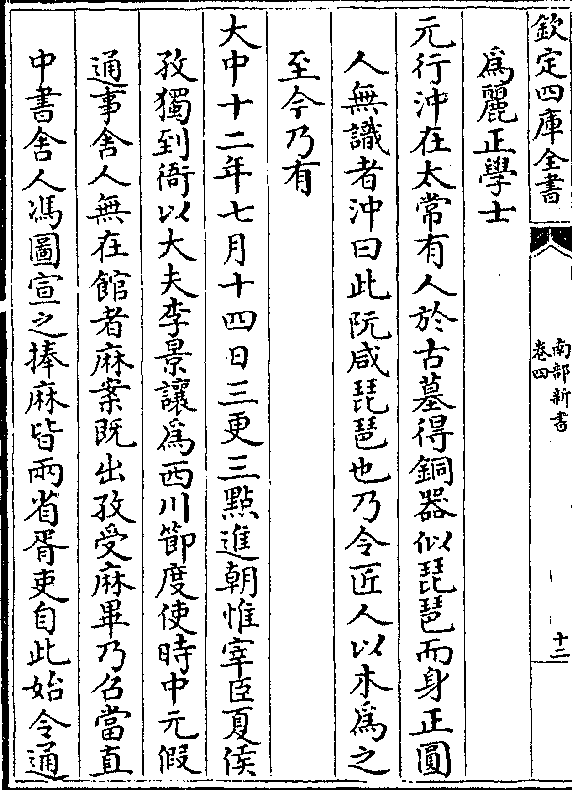 欽定四庫全書
南部新書
卷四
十二
爲麗正學士
元行沖在太常有人於古墓得銅器似琵琶而身正圓
人無識者沖曰此阮咸琵琶也乃令匠人以木爲之
至今乃有
大中十二年七月十四日三更三點進朝惟宰臣夏侯
孜獨到衙以大夫李景讓爲西川節度使時中元假
通事舍人無在館者麻案既出孜受麻畢乃召當直
中書舍人馮圖宣之捧麻皆兩省胥吏自此始令通